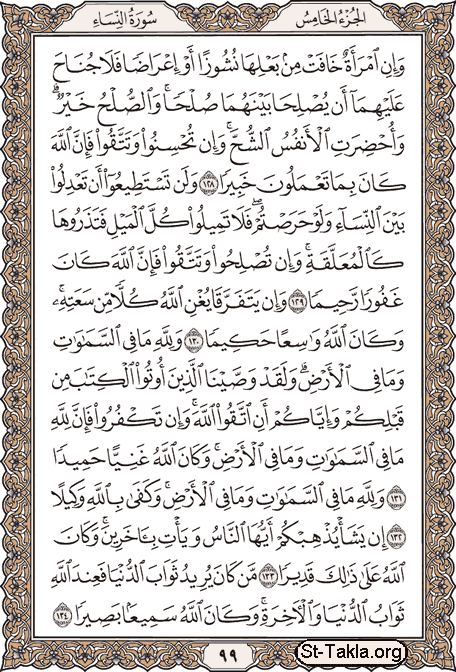 الجُزْءُ الخَامِسُ سُورَةُ النِّسَاءِ
وَإِنِ ٱمْرَأَةٌ خَافَتْ مِنۢ بَعْلِهَا نُشُوزًا أَوْ إِعْرَاضًا فَلَا جُنَاحَ
عَلَيْهِمَآ أَن يُصْلِحَا بَيْنَهُمَا صُلْحًا ۚ وَٱلصُّلْحُ خَيْرٌ ۗ
وَأُحْضِرَتِ ٱلْأَنفُسُ ٱلشُّحَّ ۚ وَإِن تُحْسِنُوا۟ وَتَتَّقُوا۟ فَإِنَّ ٱللَّهَ
كَانَ بِمَا تَعْمَلُونَ خَبِيرًا ١٢٨ وَلَن تَسْتَطِيعُوٓا۟ أَن تَعْدِلُوا۟
بَيْنَ ٱلنِّسَآءِ وَلَوْ حَرَصْتُمْ ۖ فَلَا تَمِيلُوا۟ كُلَّ ٱلْمَيْلِ فَتَذَرُوهَا
كَٱلْمُعَلَّقَةِ ۚ وَإِن تُصْلِحُوا۟ وَتَتَّقُوا۟ فَإِنَّ ٱللَّهَ كَانَ
غَفُورًا رَّحِيمًا ١٢٩ وَإِن يَتَفَرَّقَا يُغْنِ ٱللَّهُ كُلًّا مِّن سَعَتِهِۦ ۚ
وَكَانَ ٱللَّهُ وَٰسِعًا حَكِيمًا ١٣٠ وَلِلَّهِ مَا فِى ٱلسَّمَٰوَٰتِ
وَمَا فِى ٱلْأَرْضِ ۗ وَلَقَدْ وَصَّيْنَا ٱلَّذِينَ أُوتُوا۟ ٱلْكِتَٰبَ مِن
قَبْلِكُمْ وَإِيَّاكُمْ أَنِ ٱتَّقُوا۟ ٱللَّهَ ۚ وَإِن تَكْفُرُوا۟ فَإِنَّ لِلَّهِ
مَا فِى ٱلسَّمَٰوَٰتِ وَمَا فِى ٱلْأَرْضِ ۚ وَكَانَ ٱللَّهُ غَنِيًّا حَمِيدًا
١٣١ وَلِلَّهِ مَا فِى ٱلسَّمَٰوَٰتِ وَمَا فِى ٱلْأَرْضِ ۚ وَكَفَىٰ بِٱللَّهِ وَكِيلًا
١٣٢ إِن يَشَأْ يُذْهِبْكُمْ أَيُّهَا ٱلنَّاسُ وَيَأْتِ بِـَٔاخَرِينَ ۚ وَكَانَ
ٱللَّهُ عَلَىٰ ذَٰلِكَ قَدِيرًا ١٣٣ مَّن كَانَ يُرِيدُ ثَوَابَ ٱلدُّنْيَا فَعِندَ ٱللَّهِ
ثَوَابُ ٱلدُّنْيَا وَٱلْءَاخِرَةِ ۚ وَكَانَ ٱللَّهُ سَمِيعًۢا بَصِيرًا ١٣٤
٩٩
St-Takla.org